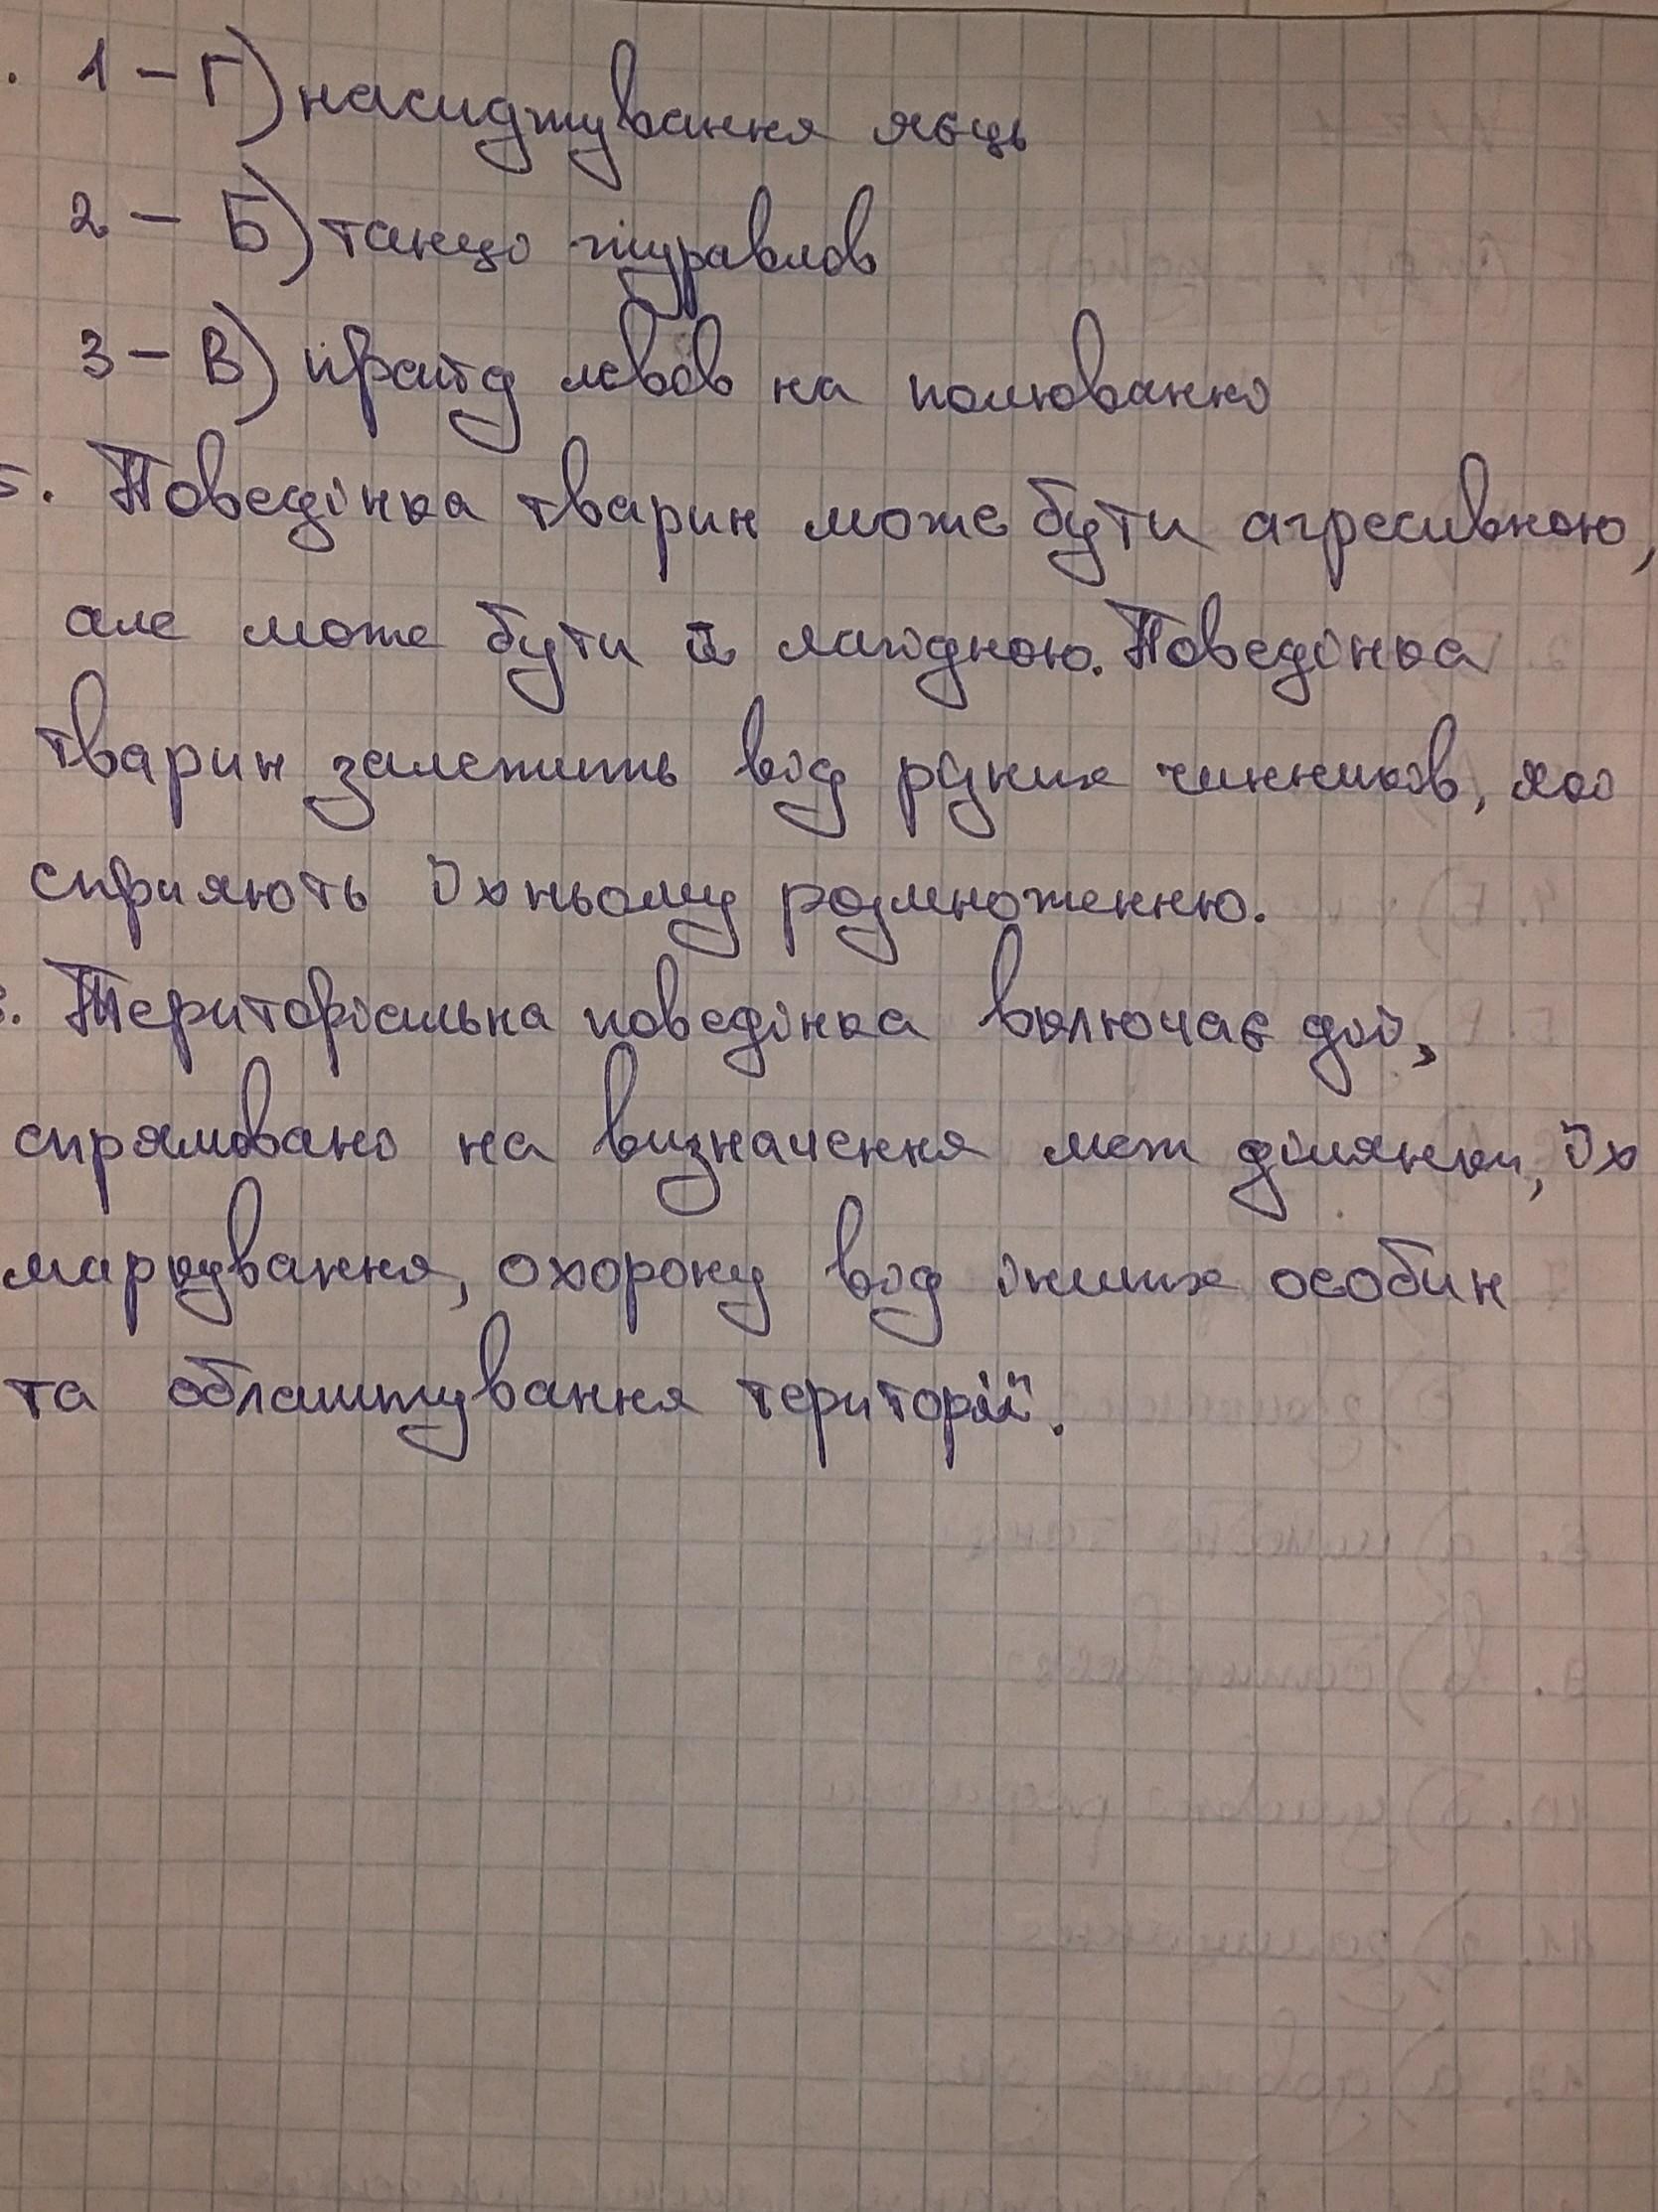 . 1 – Г) насиджування яєць
2 – Б) танці журавлів
3 – В) прайд левів на полюванні
5. Поведінка тварин може бути агресивною,
але може бути й лагідною. Поведінка
тварин залежить від різних чинників, які
сприяють їхньому розмноженню.
6. Територіальна поведінка включає дії,
спрямовані на визначення меж ділянки, їх
маркування, охорону від інших особин
та облаштування території.